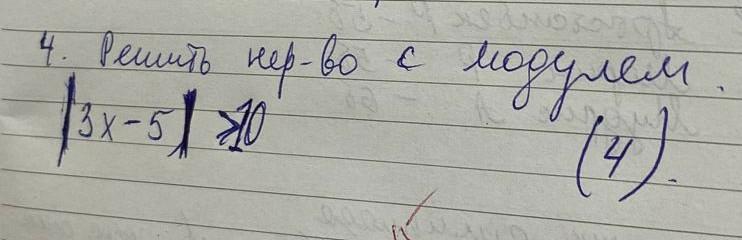 4. Решить нер-во с модулем.
|3x-5| ≥10
(4).